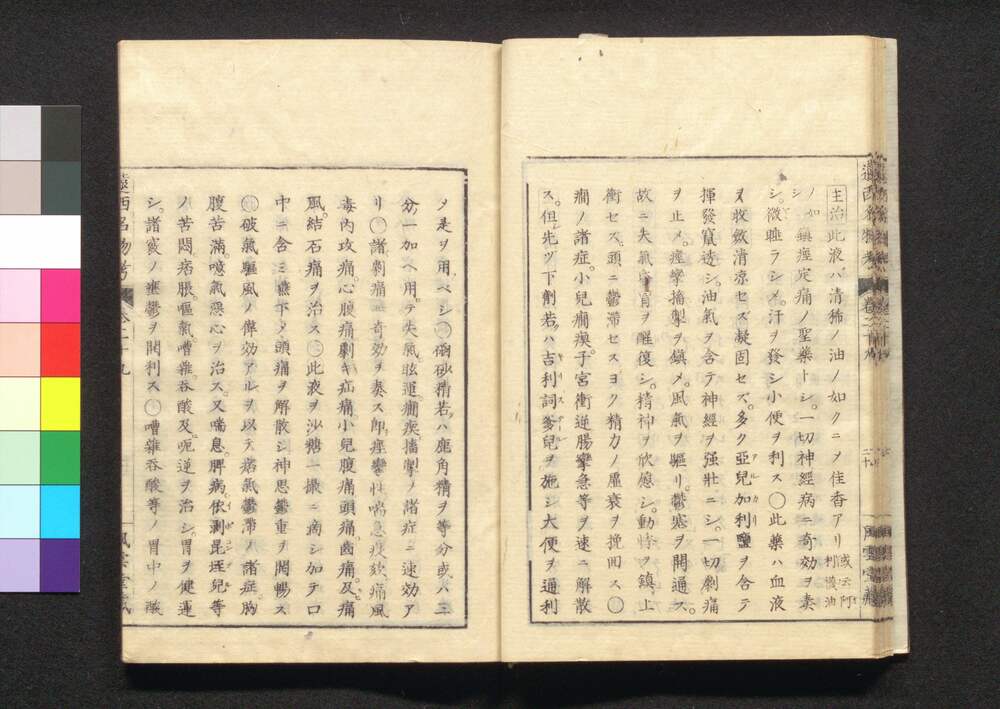 主治此液ハ清稀ノ油ノ如クニ〆佳香アリ 或云阿利襪油
ノ如シ 鎮痙定痛ノ聖薬トシ。一切神經病ニ奇効ヲ奏
シ。微睡ラシメ。汗ヲ發シ小便ヲ利ス〇此藥ハ血液
ヲ收斂清凉セズ凝固セズ。多ク亞兒加利鹽ヲ含テ
揮發竄透シ。油氣ヲ含テ神經ヲ强壯ニシ。一切劇痛
ヲ止メ。痙攣搐掣ヲ鎮メ。風氣ヲ驅リ。鬱塞ヲ開通ス。
故ニ失氣昏冒ヲ醒復シ。精神ヲ欣慰シ。動悸ヲ鎮。上
衝セズ。頭ニ鬱滯セスヨク精力ノ虛衰ヲ挽回ス〇
癎ノ諸症。小兒癎瘈。子宮衝逆腸攣急等ヲ速ニ解散
ス。但先ツ下劑若クハ吉利詞爹兒ヲ施シ大便ヲ通利
〆是ヲ用ベシ〇磠砂精若クハ鹿角精ヲ等分或ハ三
分一加ヘ用テ失氣。眩運。癎疾。搐掣ノ諸症ニ速効ア
リ〇諸劇痛ニ奇効ヲ奏ス即痙攣性喘急疫欬痛風
毒内攻痛。心腹痛劇キ疝痛小兒腹痛頭痛。齒痛。及痛
風。結石痛ヲ治ス〇此液ヲ沙糖一撮ニ滴シ加テ口
中ニ含ミ嚥下〆頭痛ヲ解散シ神思鬱重ヲ開暢ス
〇破氣驅風ノ偉効アルヲ以テ痞氣鬱滯ノ諸症。胸
腹苦滿。噫氣惡心ヲ治ス。又喘息。脾病依剥昆垤兒等
ノ苦悶痞脹。嘔氣。嘈雜吞酸及ヒ呃逆ヲ治シ。胃ヲ健運
シ。諸竅ノ壅鬱ヲ開利ス〇嘈雜吞酸等ノ胃中ノ酸
遠西名物考
風雲堂藏